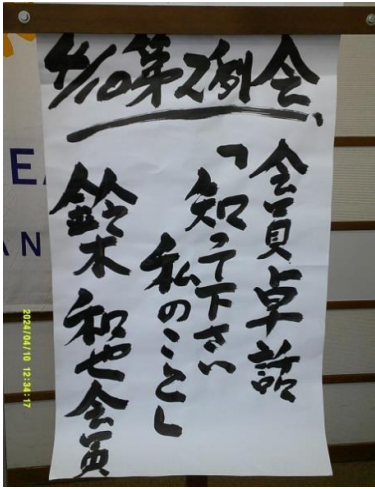 4/10第2例会、
会員卓話
「知って下さい
私のこと」
鈴木 和也会員
EA
AN
2024/04/10 12:34:17